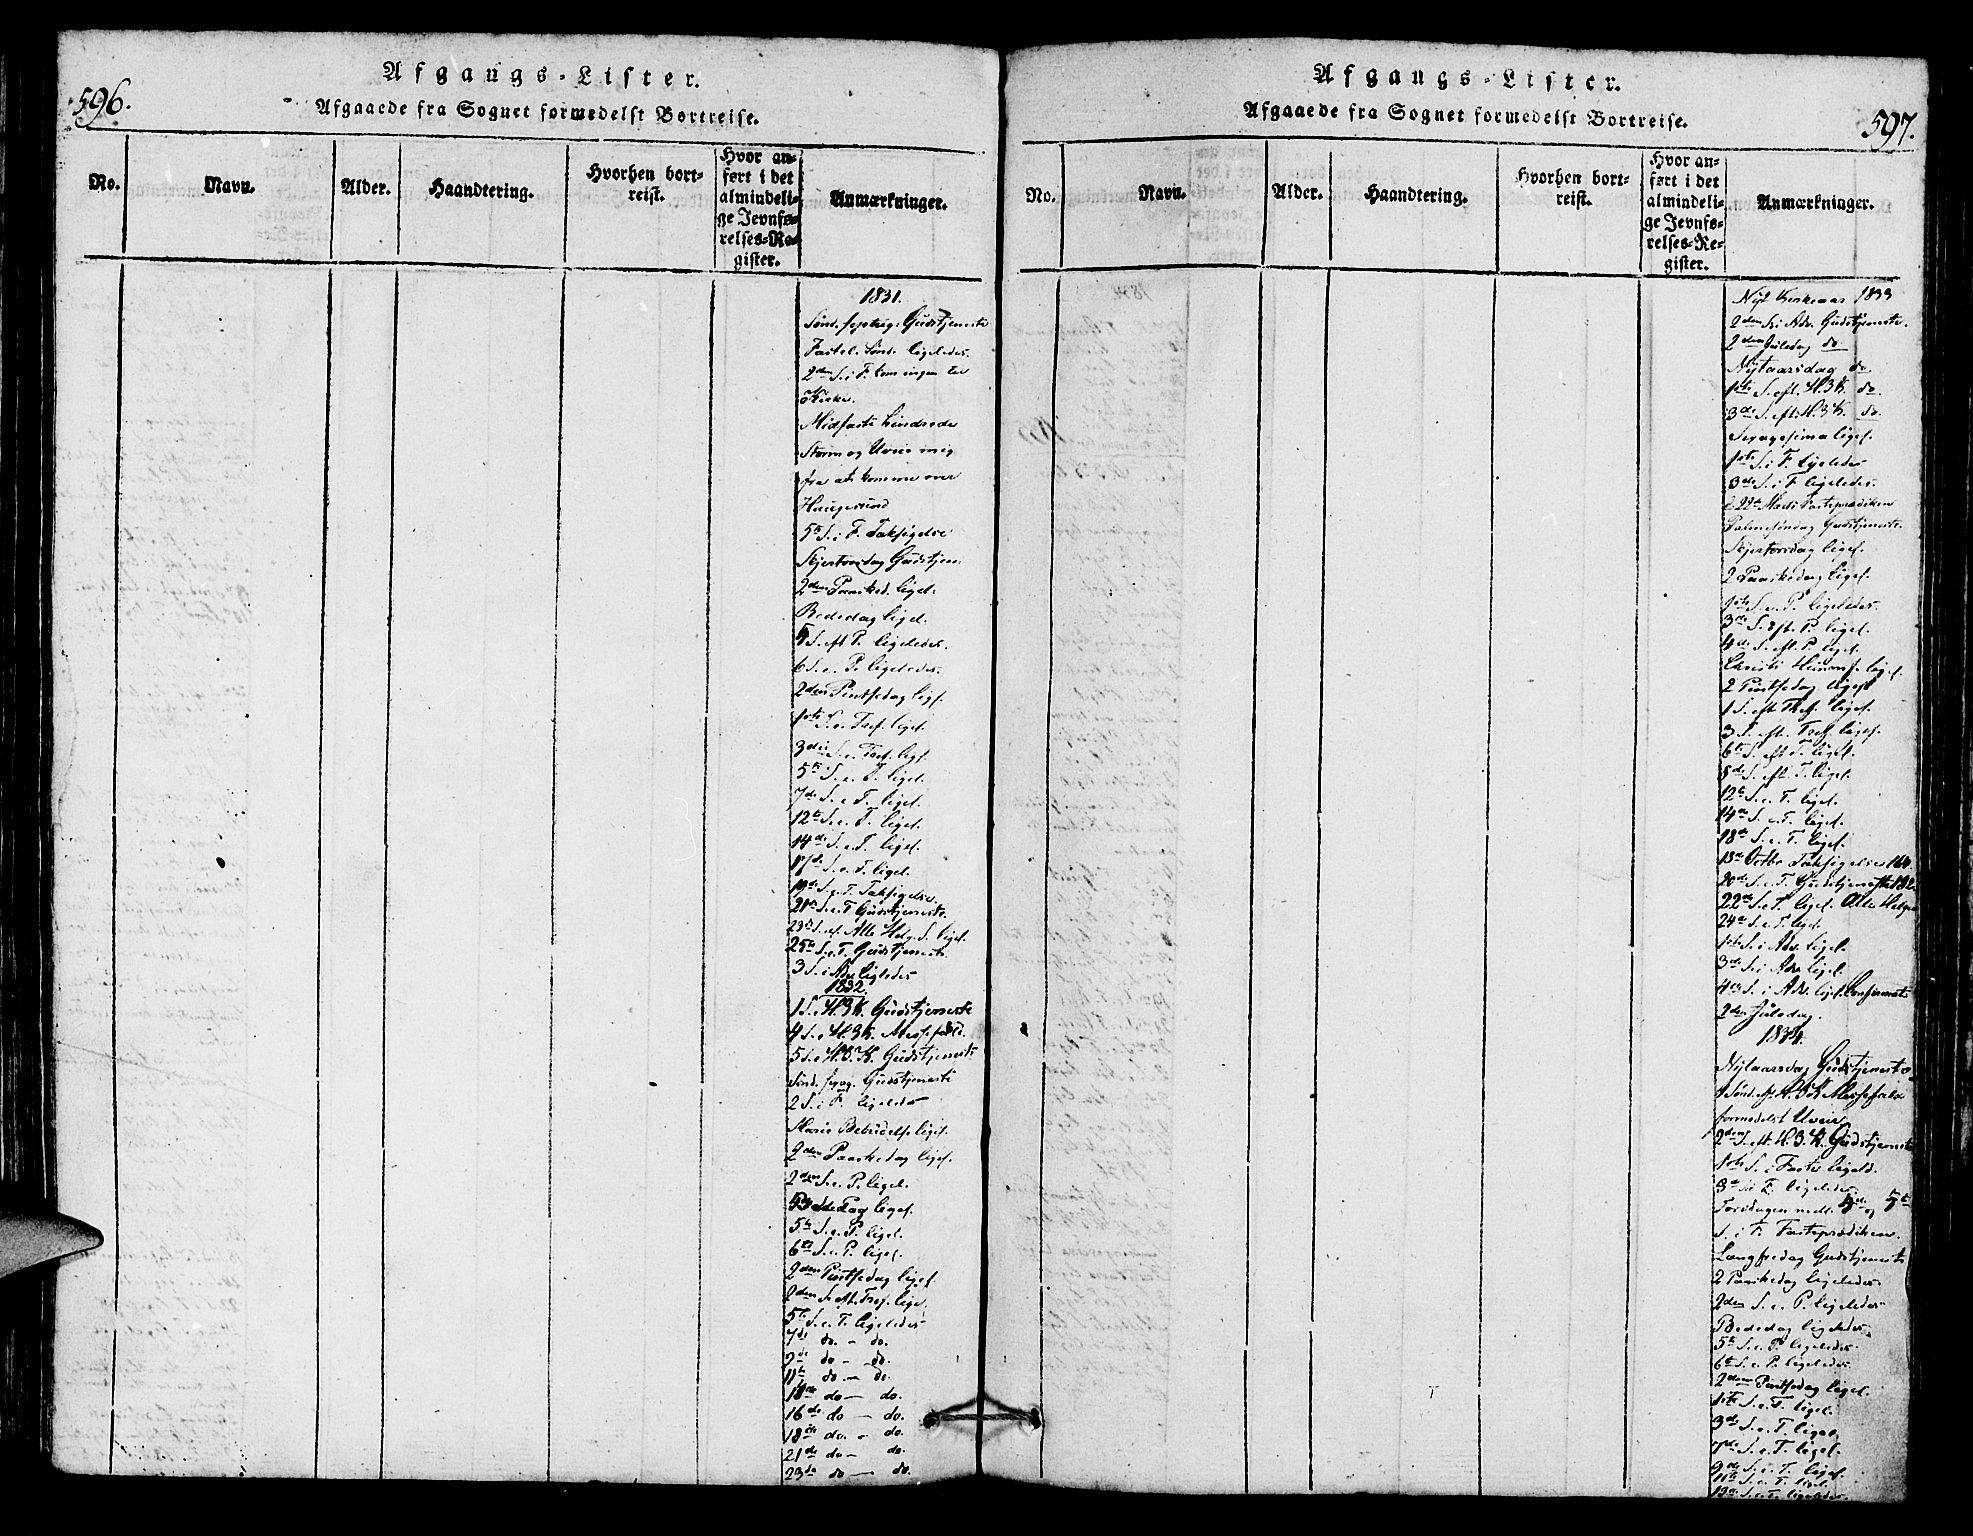 596.
Afgangs-Lister.
Afgaaede fra Sognet formedelst Bortreise.
No.
Navn.
Alder.
Haandtering.
Hvorhen bort-
reist.
Hvor an-
ført i det
almindeli-
ge Jevnfø-
relses-Re-
gister.
Anmærkninger.
1831.
Sønd. sexag. Gudstjeneste
Fastel. Sønd. ligeledes.
2den S. i F. kom ingen til
Kirke.
Midfaste hindrede
Storm og Uveir mig
fra at komme over
Haugesund
5te S. i F. Taksigelse
Skjertorsdag Gudstjen.
2den Paasked. ligel.
Bededag ligel.
5 S. eft P. ligeledes.
6 S. e. P. ligeledes.
2den Pintsedag ligs.
1ste S. e. Tref. ligel.
3die S. e. Tref. ligs.
5te S. e. T. ligel.
7de S. e T. ligel.
12te S. e. T. ligel.
14de S. e. T. ligel.
17de S. e. T. ligel.
19de S. e. T. Taksigelse.
21de S. e. T Gudstjeneste
23de S. ef. Alle Helg. S. ligel.
25de S. e. T. Gudstjeneste
3 S. i Adv ligeledes
1832.
1 S. e H.3K. Gudstjeneste
4 S. e H.3K. Messefald.
5 S. e H.3.K. Gudstjeneste
Sønd. sexag. Gudstjeneste
2 S. i F. ligeledes
Marie Bebudelse ligel.
2den Paaskedag ligel.
2den S. e. P. ligel.
Bededag ligel.
5te S. e. P. ligel.
6te S. e. P. ligel.
2den Pintsedag ligel.
2den S. eft. Tref. ligel.
5te S. e. T. ligeledes
7de do. – do.
9de do – do.
11te do – do.
14de do – do.
16de do – do.
18de do. – do.
21de do – do.
23de do – do.
597.
Afgangs-Lister.
Afgaaede fra Sognet formedelst Bortreise.
No.
Navn.
Alder.
Haandtering.
Hvorhen bort-
reist.
Hvor an-
ført i det
almindeli-
ge Jevnfø-
relses-Re-
gister.
Anmærkninger.
Nyt Kirkeaar 1833
2den S. i Adv. Gudstjeneste.
2den Juledag do
Nytaarsdag do.
1ste S. eft. H.3K. do.
3de S. eft. H.3K. do.
Sexagesima ligel.
1ste S. i F. ligeledes
3de S. i F. ligeledes.
d. 22de Marts Fasteprædiken
Palmesøndag Gudstjeneste.
Skjertorsdag ligel.
2 Paaskedag ligel.
1ste S. e. P. ligeledes.
3de S. eft. P. ligel.
4de S. eft. P. ligel.
Christi Himmelf. ligel.
2 Pintsedag ligel
1 S. eft Tref. ligel.
3 S. eft. Tref. ligel.
6te S. eft T. ligel.
8de S. eft. T. ligel.
12te S. e. T. ligel.
14de S. e. T. ligel.
18de S. e. T. ligel.
18de Octbr Taksigelse
20de S. e. T. Gudstjeneste
22de S. e T. ligel. Alle Helgen
24de S. e T. ligel.
1ste S. i Adv. ligel.
3de S. i Adv ligel.
4de S. i Adv. ligel. Confirmat.
2den Juledag.
1834.
Nytaarsdag Gudstjeneste
1 Sønd. eft H. 3K Messefald
formedelst Uveir
2den S. eft H. 3. K. Gudstjeneste
1ste S. i Faste ligeld.
3de S. i F. ligeledes
Torsdagen mell. 4de og 5te
S. i F. Fasteprædiken.
Langfredag Gudstjeneste
2 Paaskedag ligeledes
2den S. e. P. ligeledes
Bededag ligeledes
5te S. e. P. ligeledes
6te S. e. P. ligeledes
2den Pintsedag ligel.
1ste S. e. T. ligel.
3de S. e. T. ligel.
7de S. e. T. ligel.
9de S. e. T. ligel.
11te S. e. T. ligel.
S. e. T. ligeledes